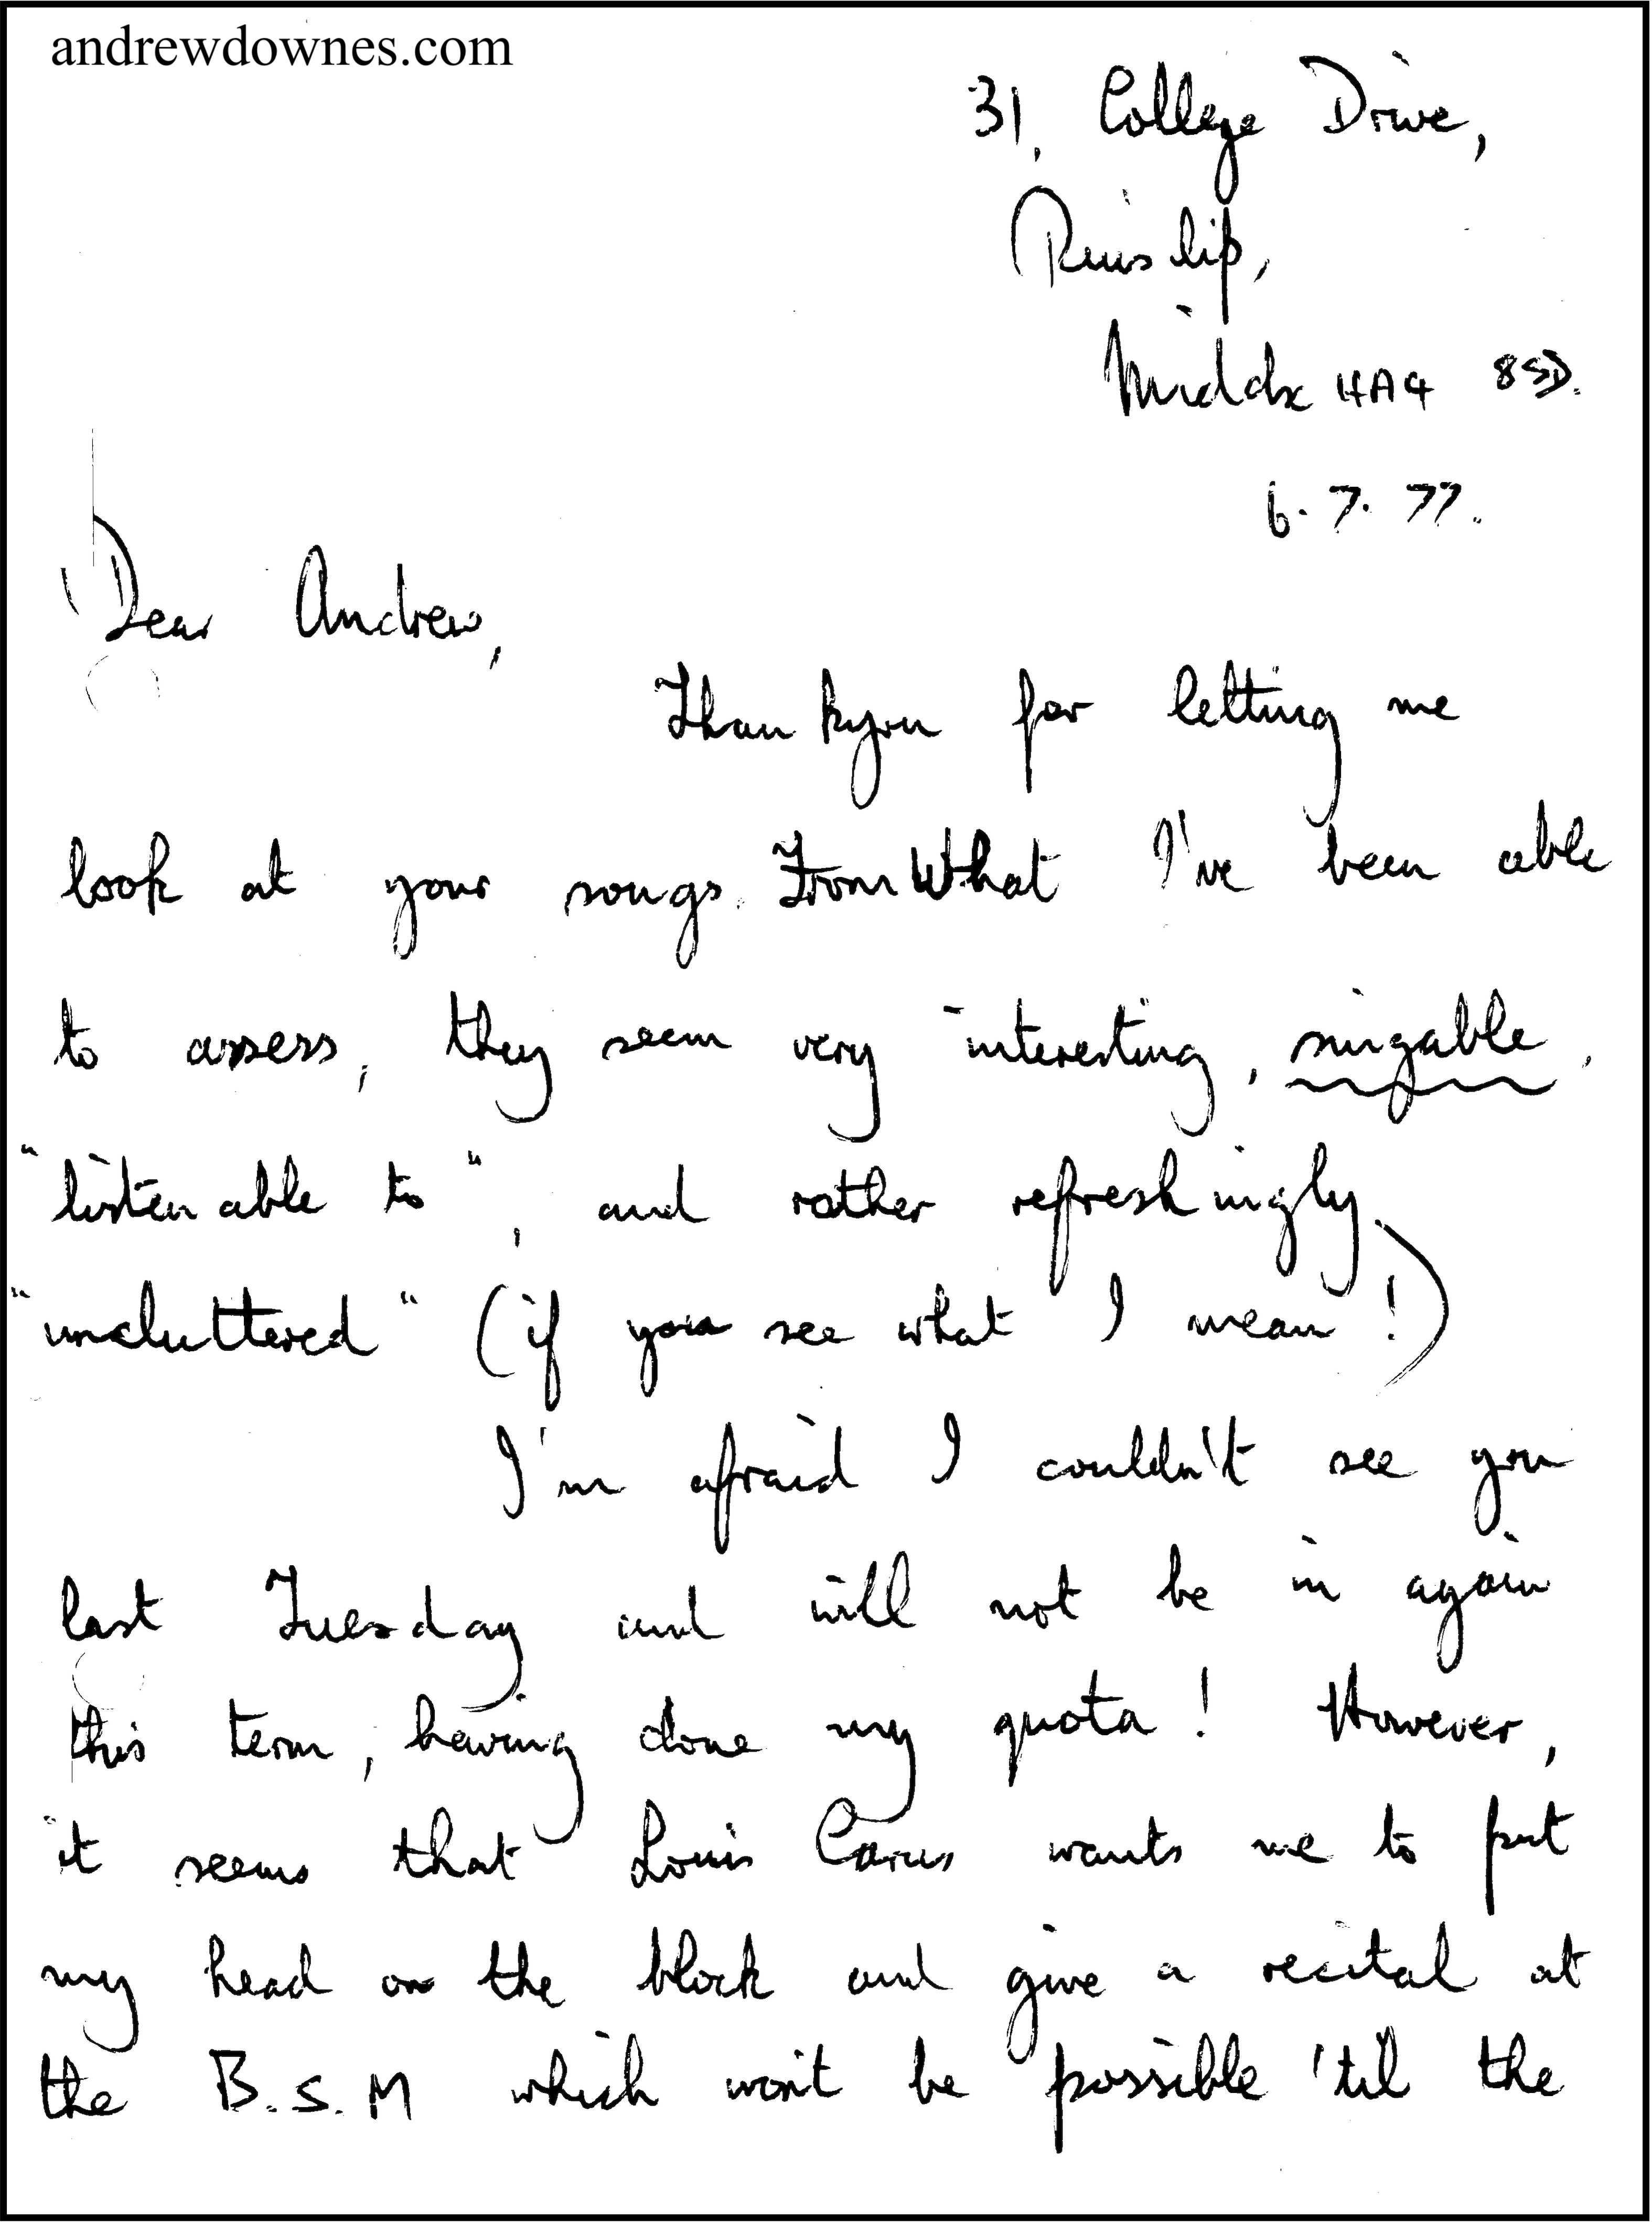 andrewdownes.com
31, College Drive,
Ruislip,
Middx HA4 8SD.
6.7.77.
Dear Andrew,
Thankyou for letting me
look at your songs. From What I've been able
to assess, they seem very interesting, singable,
"listenable to", and rather refreshingly
"uncluttered" (if you see what I mean!)
I'm afraid I couldn't see you
last Tuesday and will not be in again
this term, having done my quota! However,
it seems that Louis Carus wants me to put
my head on the block and give a recital at
the B.S.M which won't be possible 'til the